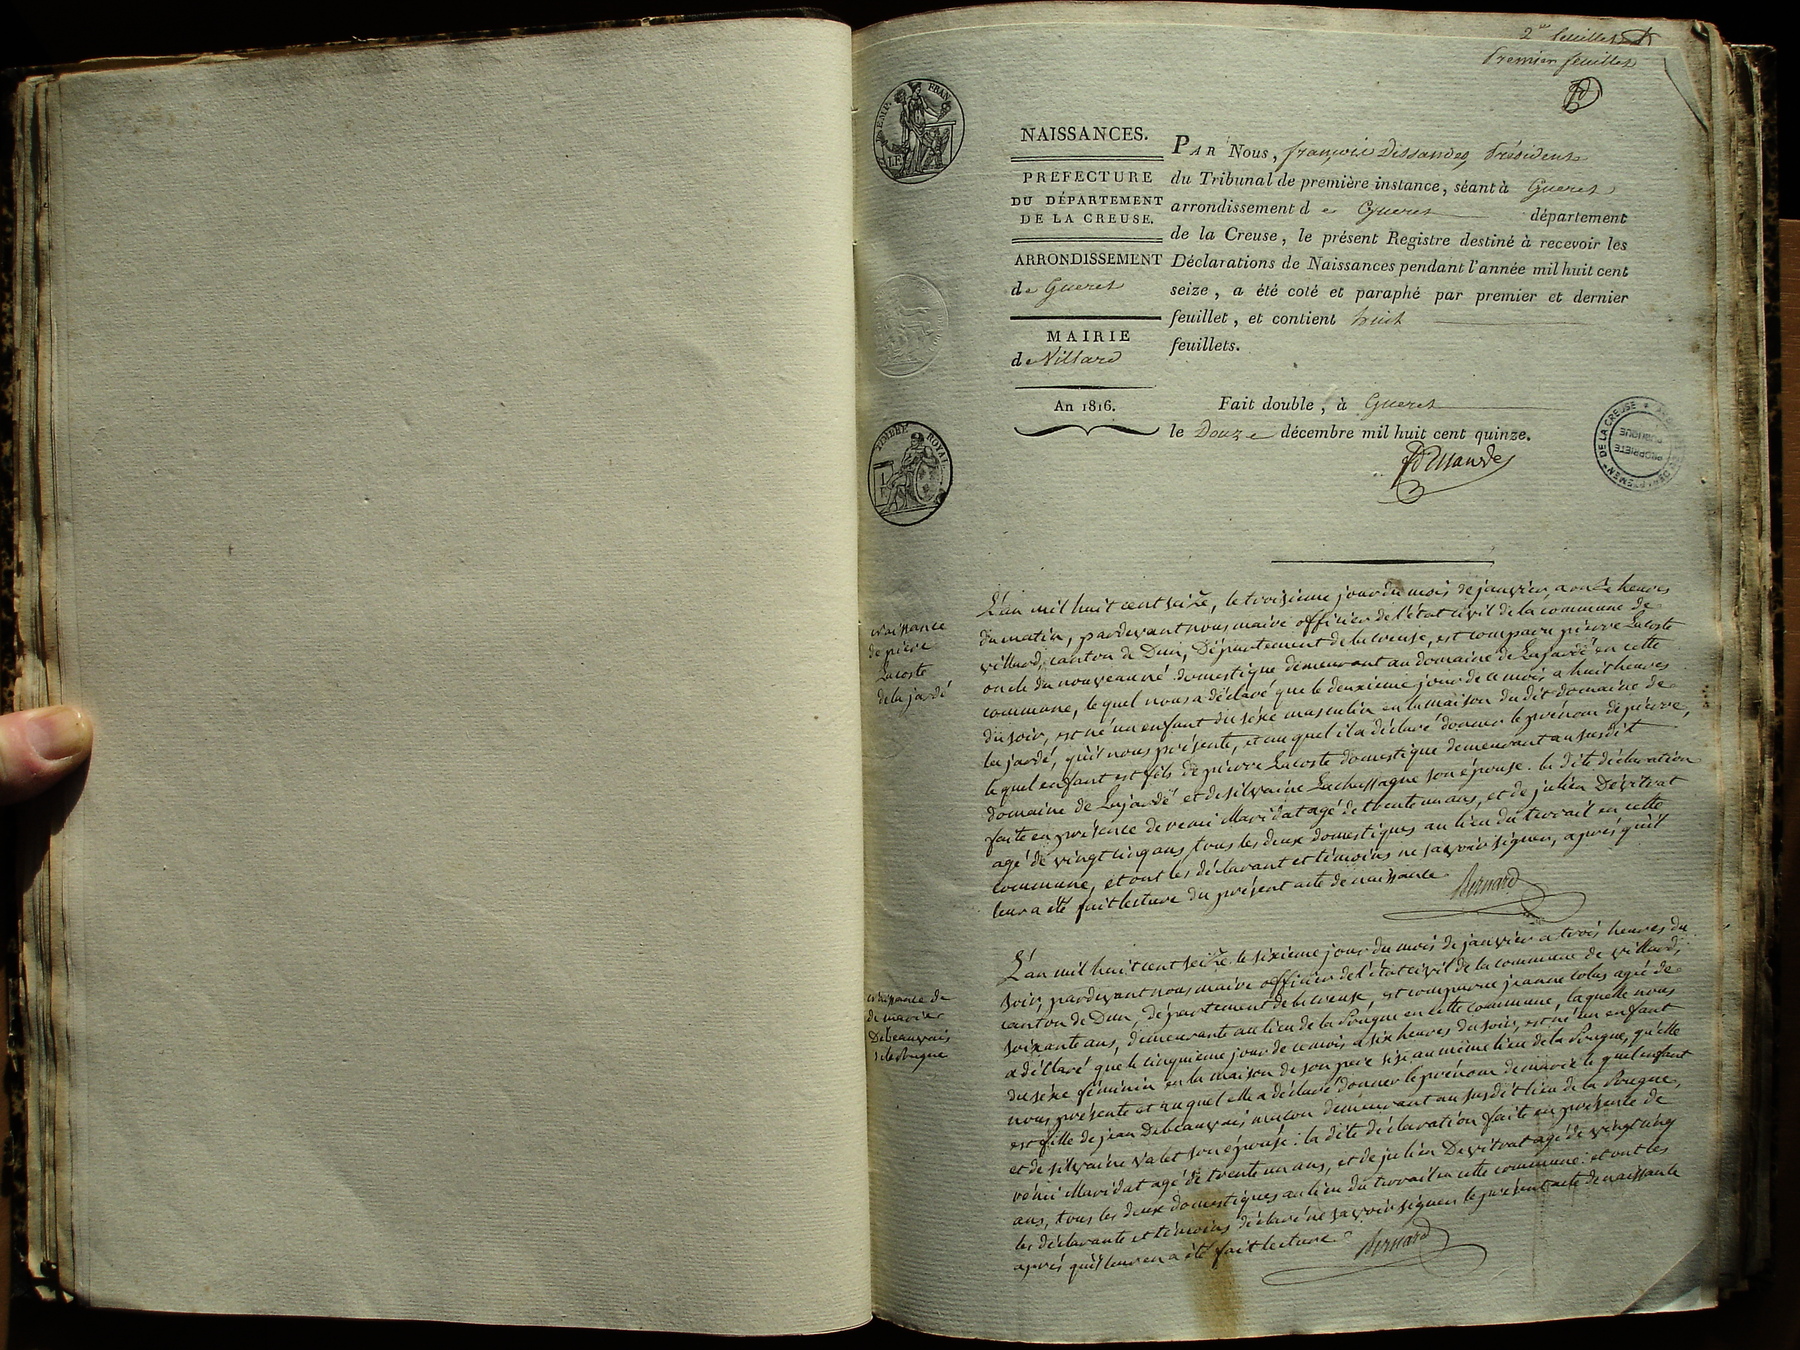 2e feuillet
Premier feuillet
EMP. FRAN
NAISSANCES.
PREFECTURE
DU DÉPARTEMENT
DE LA CREUSE.
ARRONDISSEMENT
de Gueret
MAIRIE
de Villard
An 1816.
PAR Nous, françois Dissandes Président
du Tribunal de première instance, séant à Gueret
arrondissement de Gueret département
de la Creuse, le présent Registre destiné à recevoir les
Déclarations de Naissances pendant l'année mil huit cent
seize, a été coté et paraphé par premier et dernier
feuillet, et contient huit
feuillets.
Fait double, à Gueret
le Douze décembre mil huit cent quinze.
Dissande
TIMBRE ROYAL
DE LA CREUSE
PROPRIETE
PUBLIQUE
naissance
de pierre
Lacoste
de la jardé
L'an mil huit cent seize, le troisieme jour du mois de janvier, a onze heures
du matin, pardevant nous maire officier de l'état civil de la commune de
villard, canton de Dun, Département de la creuse, est comparu pierre Lacoste
oncle du nouveau né domestique demeurant au domaine de Lajardé en cette
commune, le quel nous a déclaré que le deuxieme jour de ce mois a huit heures
du soir, est né un enfant du séxe masculin en la maison du dit domaine de
la jardé, qu'il nous présente, et au quel il a déclaré donner le prénom de pierre,
le quel enfant est fils de pierre Lacoste domestique demeurant au susdit
domaine de Lajardé et de silvaine Lachassagne son épouse. la dite déclaration
faite en présence de remi Maridat agé de trente un ans, et de julien Devitrat
agé de vingt cinq ans, tous les deux domestiques au lieu du terrail en cette
commune, et ont les déclarant et témoins ne savoir signer, aprés qu'il
leur a été fait lecture du présent acte de naissance
Bernard
naissance de
de marie
Debeauvais
de la Prugne
L'an mil huit cent seize le sixieme jour du mois de janvier a trois heures du
soir, pardevant nous maire officier de l'état civil de la commune de villard,
canton de Dun, département de la creuse, est comparue jeanne colas agée de
soixante ans, demeurante au lieu de la Prugne en cette commune, laquelle nous
a déclaré que le cinquieme jour de ce mois a six heures du soir, est né un enfant
du séxe féminin en la maison de son pere sise au même lieu de la Prugne, qu'elle
nous présente et au quel elle a déclaré donner le prénom de marie le quel enfant
est fille de jean Debeauvais maçon demeurant au susdit lieu de la Prugne,
et de silvaine valet son épouse: la dite déclaration faite en présence de
rémi Maridat agé de trente un ans, et de julien Devitrat agé de vingt cinq
ans, tous les deux domestiques au lieu du terrail en cette commune: et ont les
les déclarante et témoins déclaré ne savoir signer le présent acte de naissance
aprés qu'il leur en a été fait lecture
Bernard